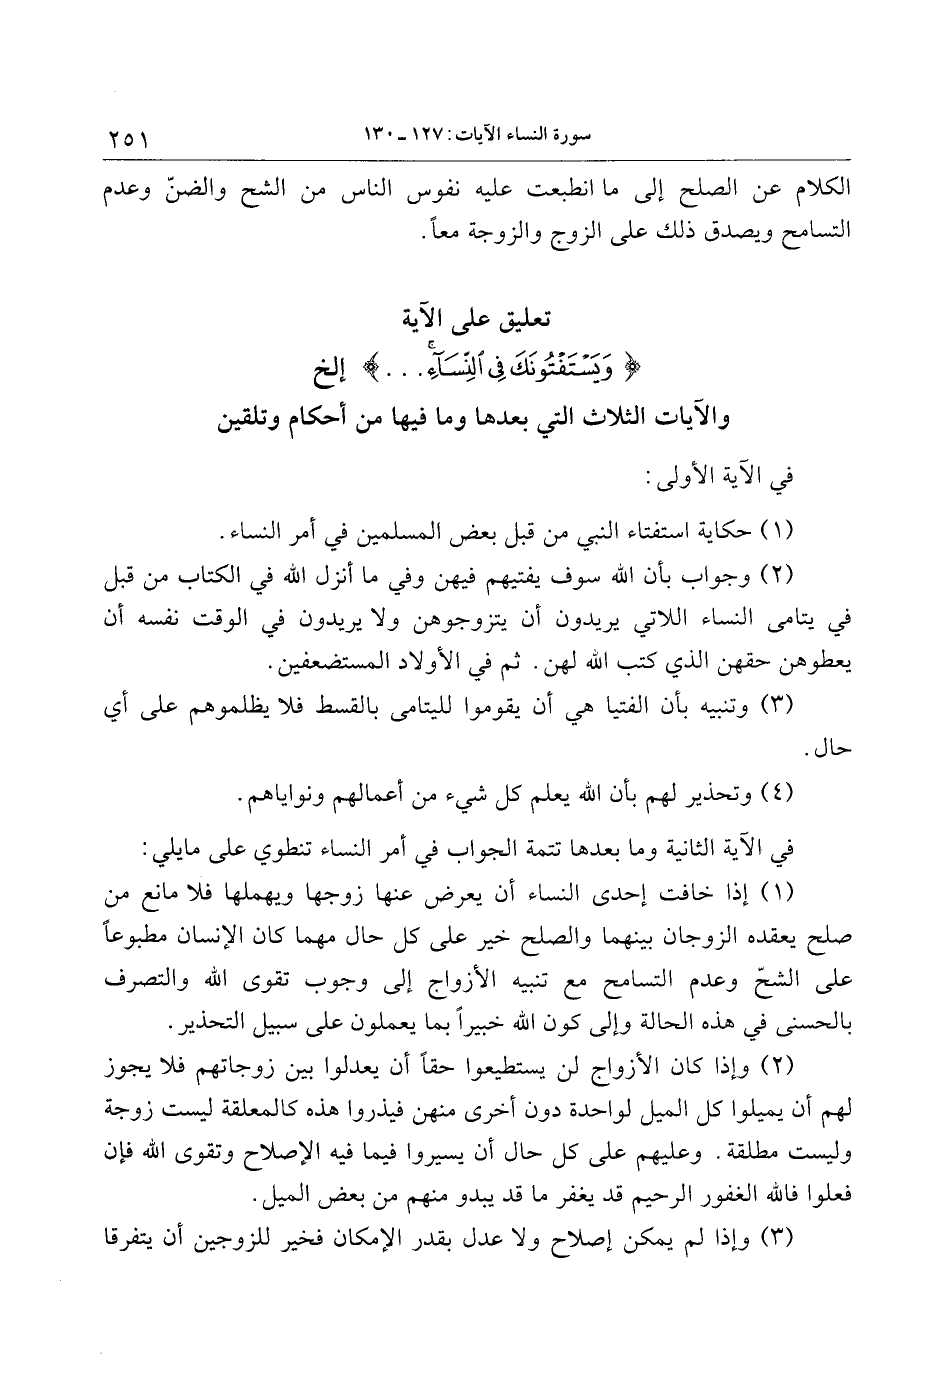 سورة النساء الآيات: ١٢٧ ـ ١٣٠ ٢٥١
الكلام عن الصلح إلى ما انطبعت عليه نفوس الناس من الشح والضنّ وعدم
التسامح ويصدق ذلك على الزوج والزوجة معاً.
تعليق على الآية
﴿ وَيَسْتَفْتُونَكَ فِى ٱلنِّسَآءِۖ . . . ﴾ إلخ
والآيات الثلاث التي بعدها وما فيها من أحكام وتلقين
في الآية الأولى:
(١) حكاية استفتاء النبي من قبل بعض المسلمين في أمر النساء.
(٢) وجواب بأن الله سوف يفتيهم فيهن وفي ما أنزل الله في الكتاب من قبل
في يتامى النساء اللاتي يريدون أن يتزوجوهن ولا يريدون في الوقت نفسه أن
يعطوهن حقهن الذي كتب الله لهن. ثم في الأولاد المستضعفين.
(٣) وتنبيه بأن الفتيا هي أن يقوموا لليتامى بالقسط فلا يظلموهم على أي
حال.
(٤) وتحذير لهم بأن الله يعلم كل شيء من أعمالهم ونواياهم.
في الآية الثانية وما بعدها تتمة الجواب في أمر النساء تنطوي على مايلي:
(١) إذا خافت إحدى النساء أن يعرض عنها زوجها ويهملها فلا مانع من
صلح يعقده الزوجان بينهما والصلح خير على كل حال مهما كان الإنسان مطبوعاً
على الشحّ وعدم التسامح مع تنبيه الأزواج إلى وجوب تقوى الله والتصرف
بالحسنى في هذه الحالة وإلى كون الله خبيراً بما يعملون على سبيل التحذير.
(٢) وإذا كان الأزواج لن يستطيعوا حقاً أن يعدلوا بين زوجاتهم فلا يجوز
لهم أن يميلوا كل الميل لواحدة دون أخرى منهن فيذروا هذه كالمعلقة ليست زوجة
وليست مطلقة. وعليهم على كل حال أن يسيروا فيما فيه الإصلاح وتقوى الله فإن
فعلوا فالله الغفور الرحيم قد يغفر ما قد يبدو منهم من بعض الميل.
(٣) وإذا لم يمكن إصلاح ولا عدل بقدر الإمكان فخير للزوجين أن يتفرقا